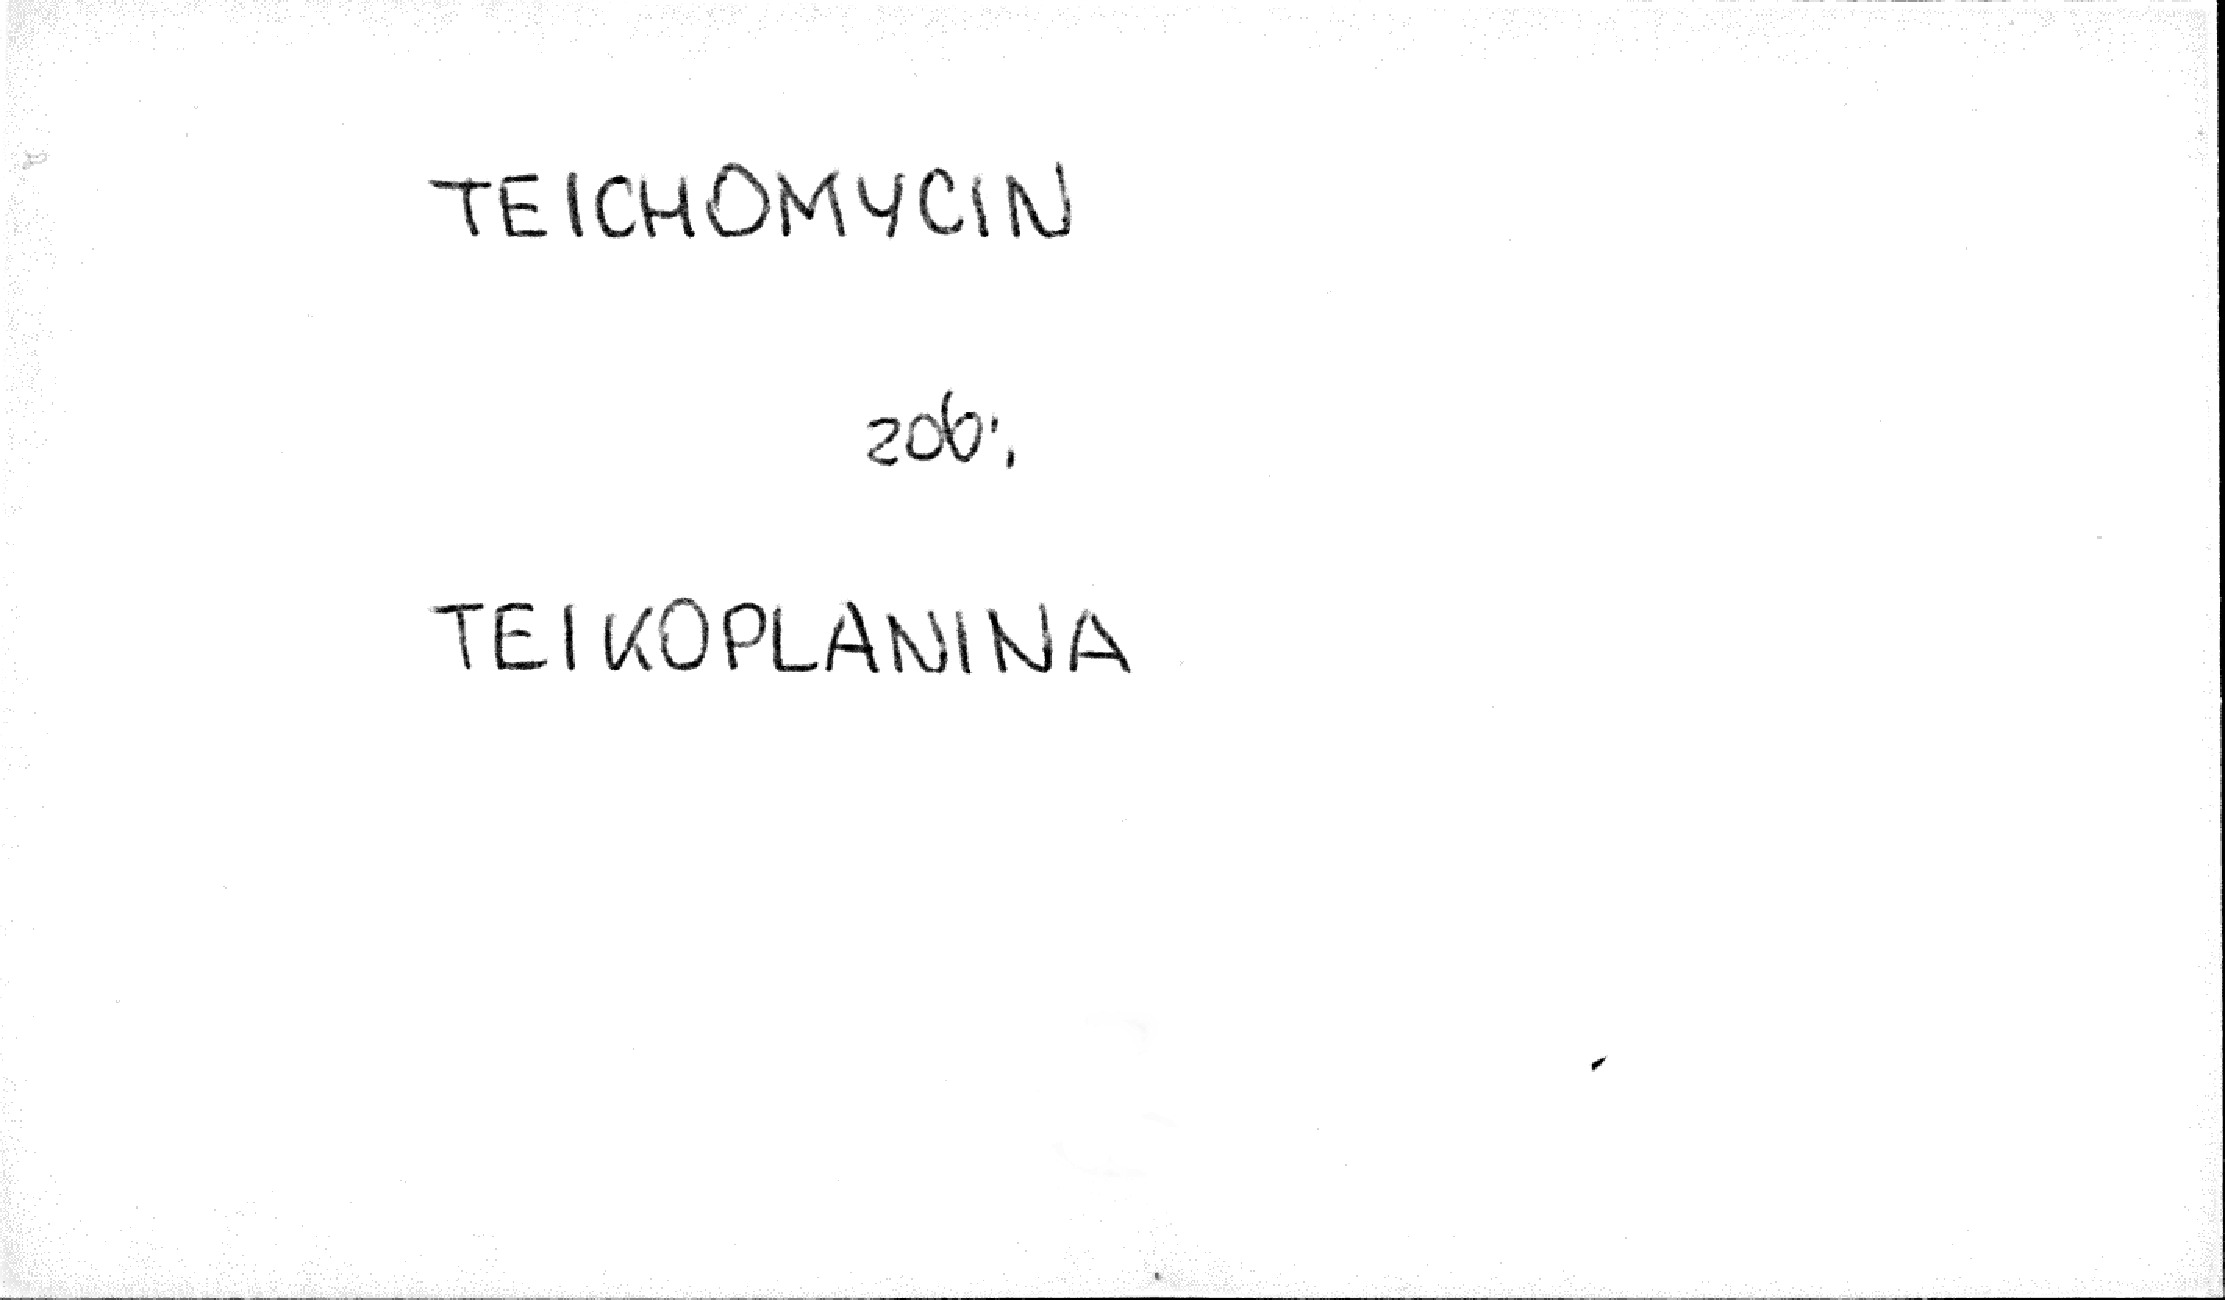 TEICHOMYCIN
zob.,
TEIKOPLANINA